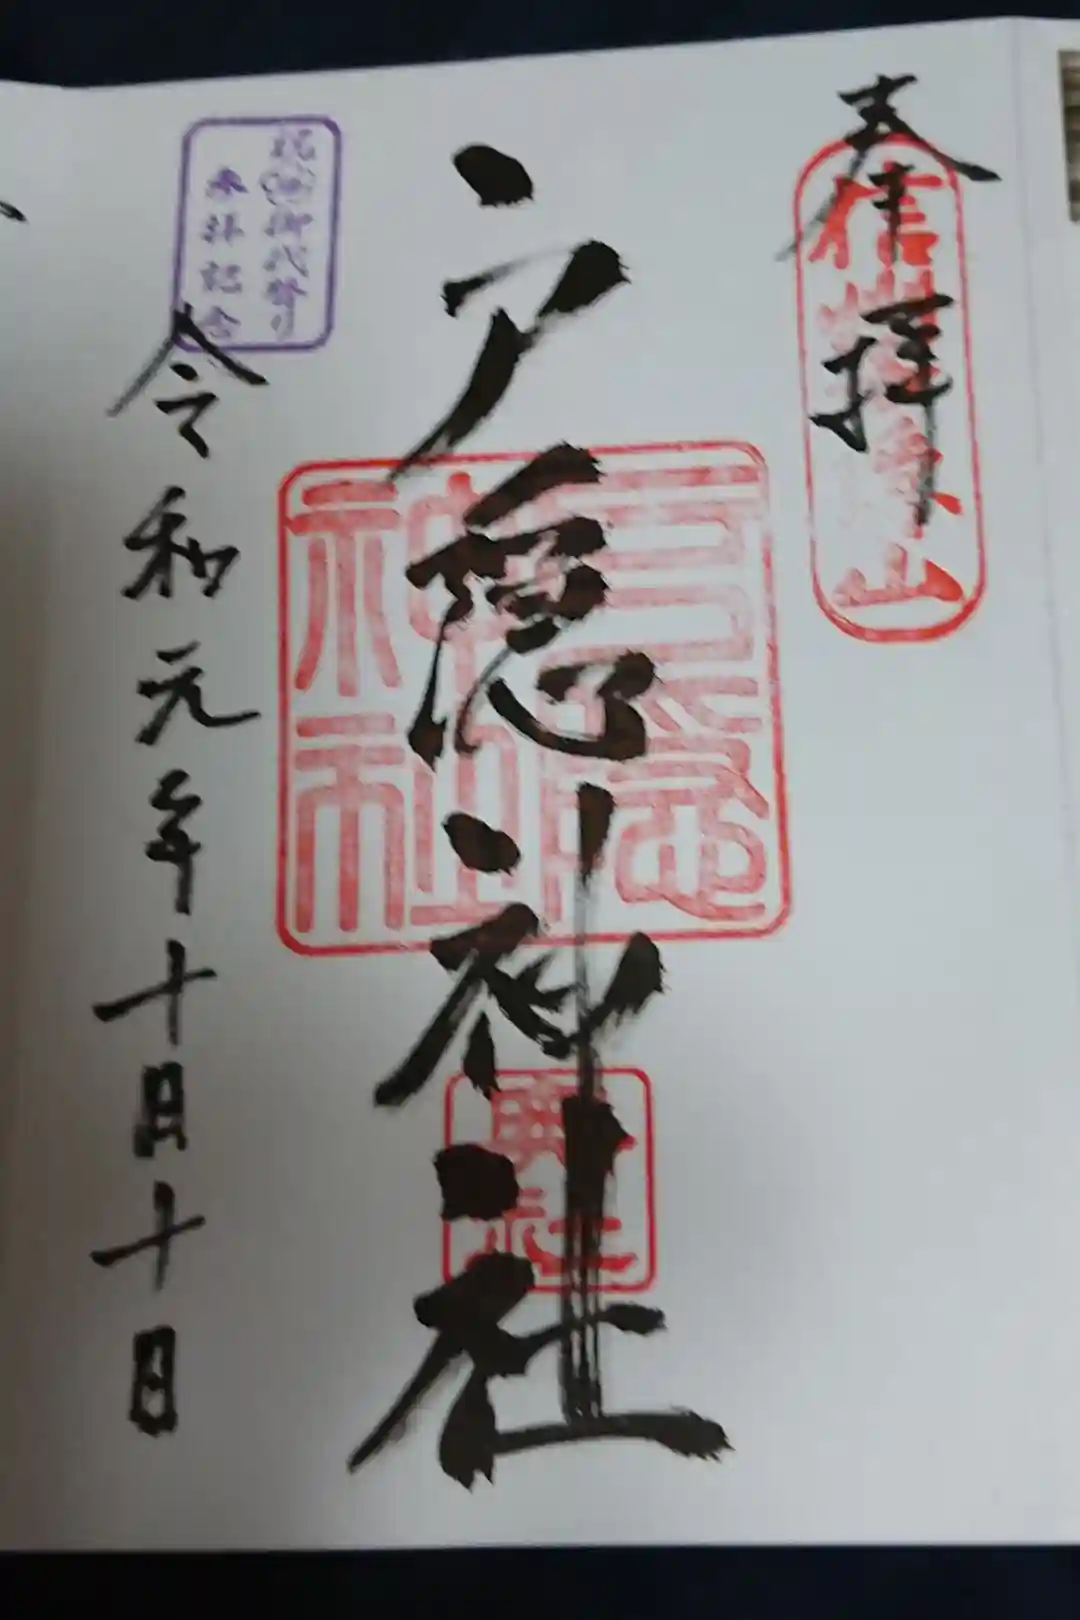 奉拝
信州戸隠山
戸隠神社
戸隠神社
奥社
祝 御代替り
参拝記念
令和元年十月十日